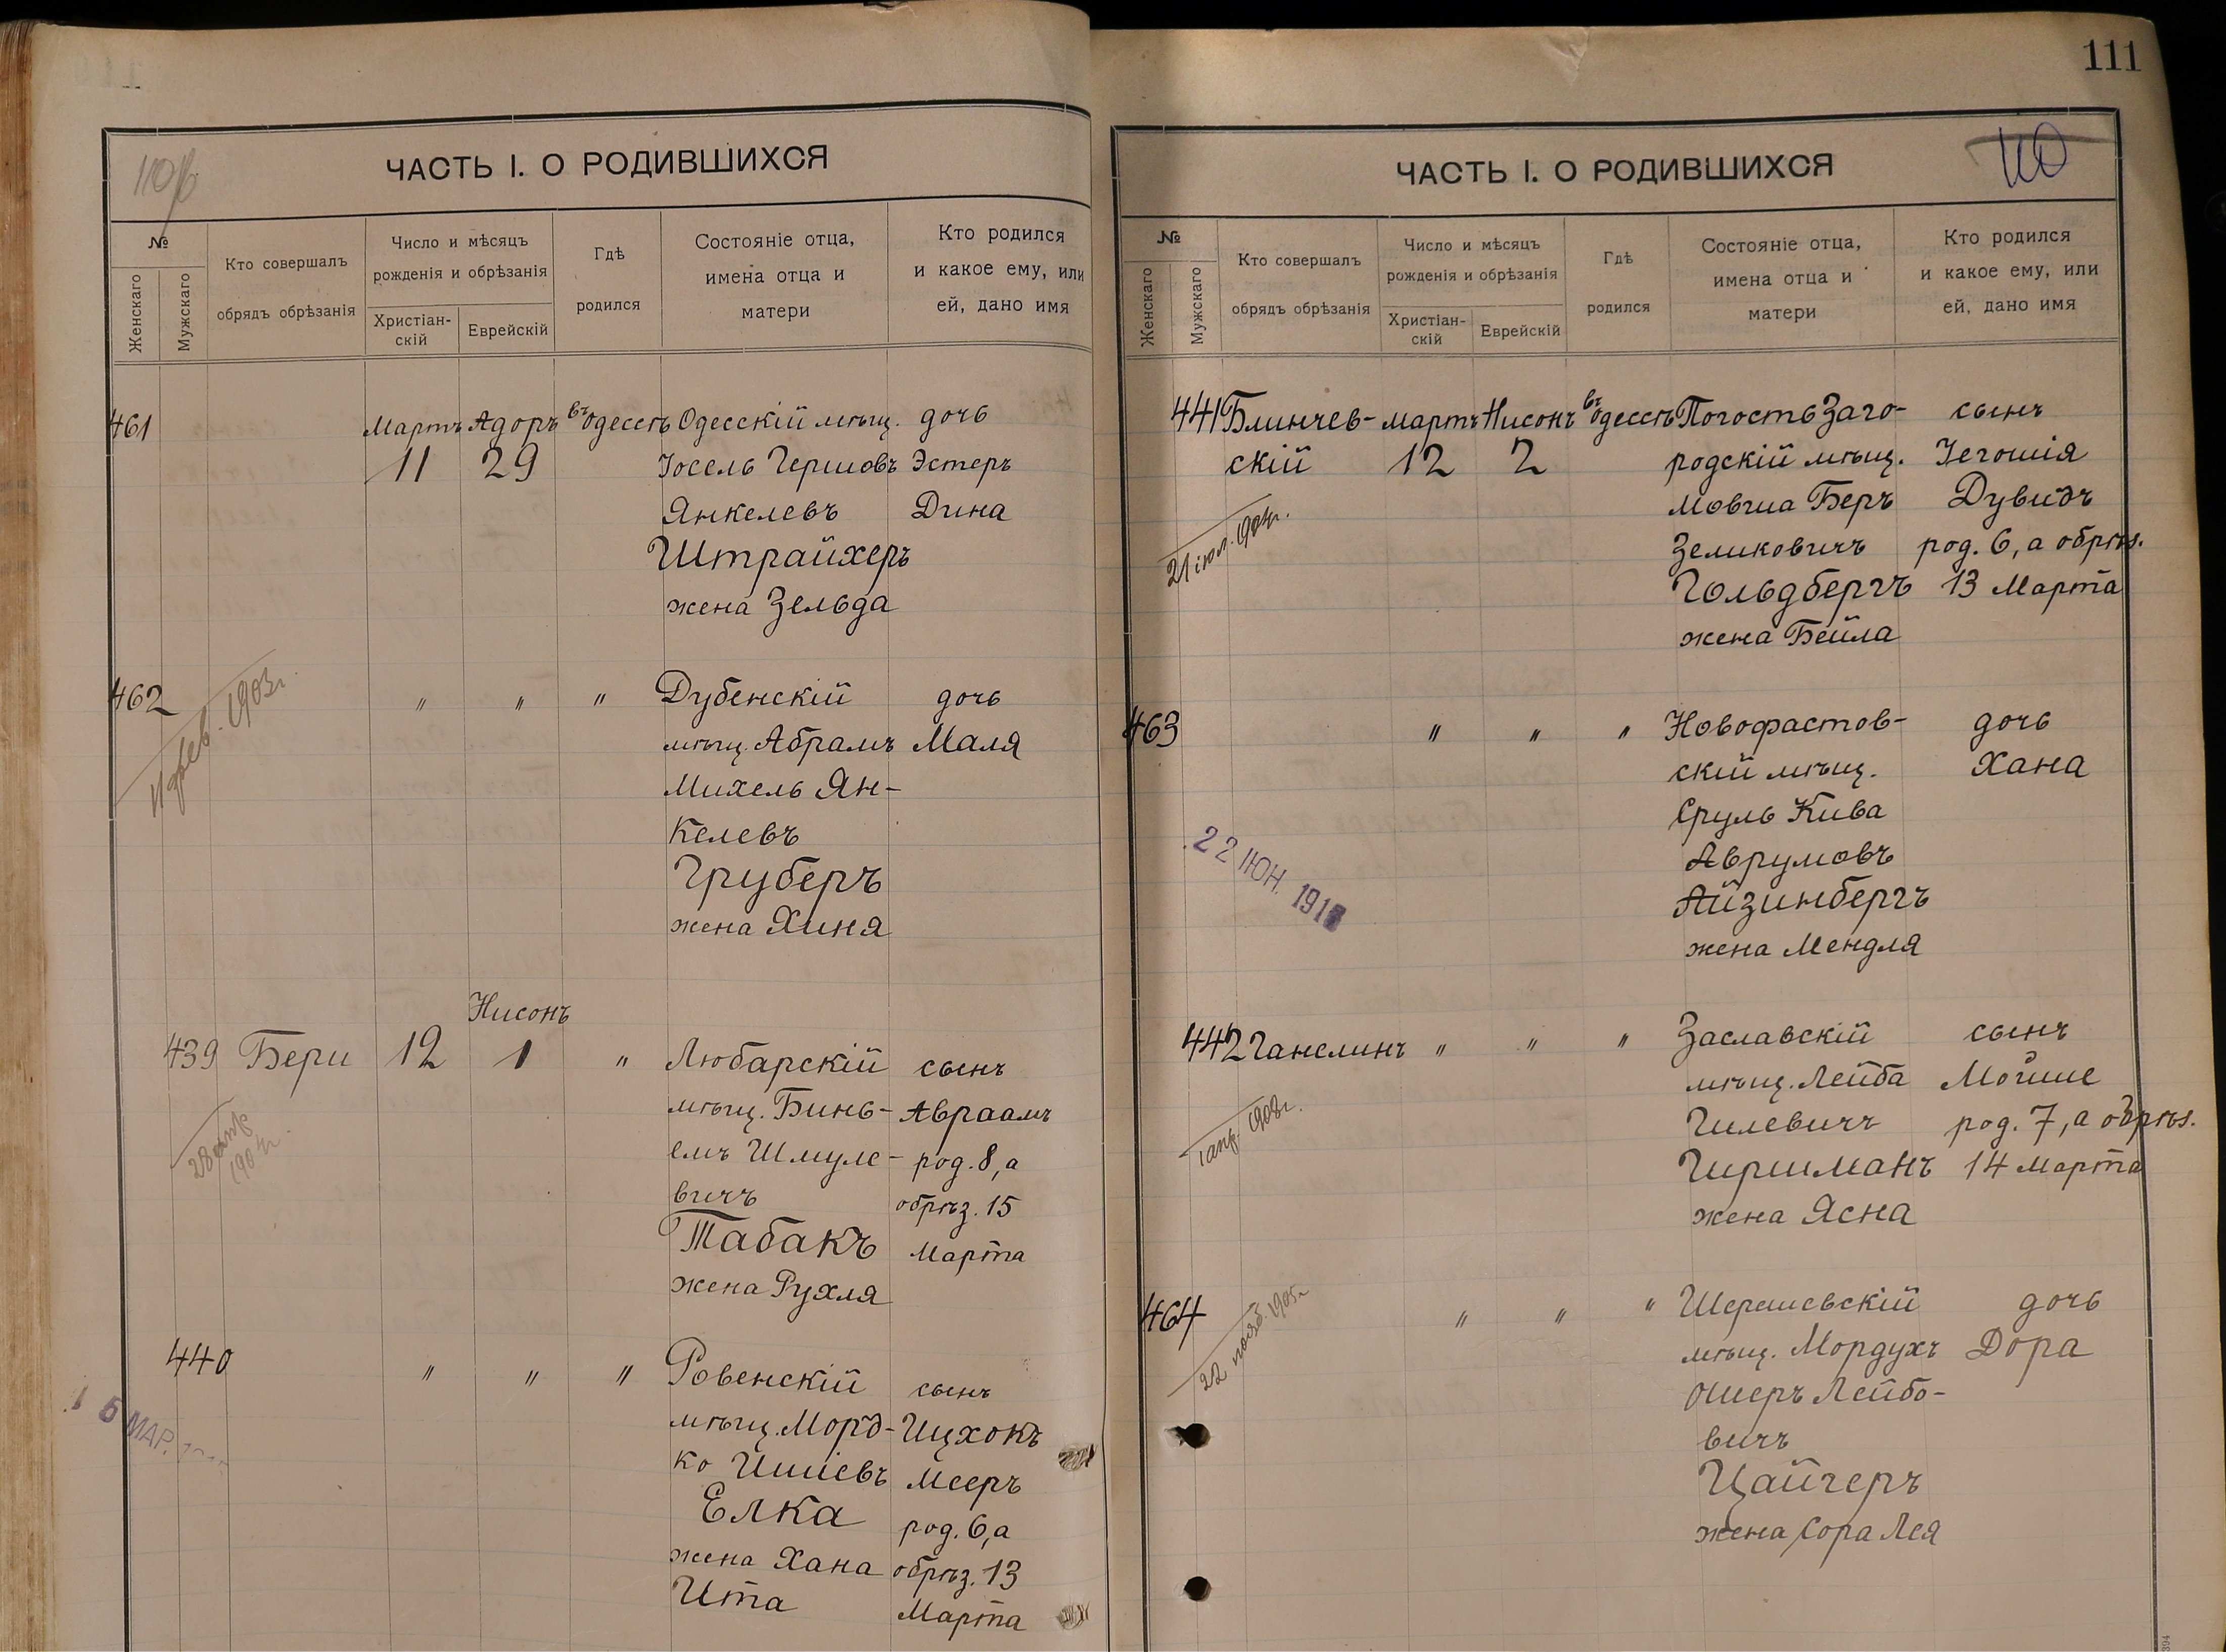 111
110
ЧАСТЬ I. О РОДИВШИХСЯ
№
Женскаго
Мужскаго
Кто совершалъ
обрядъ обрѣзанія
Число и мѣсяцъ
рожденія и обрѣзанія
Христіан-
скій
Еврейскій
Гдѣ
родился
Состояніе отца,
имена отца и
матери
Кто родился
и какое ему, или
ей, дано имя
461 Мартъ Адоръ въ Одессѣ Одесскій мѣщ. дочь
11 29 Іосель Гершовъ Эстеръ
Янкелевъ Дина
Штрайхеръ
жена Зельда
462 " " " Дубенскій дочь
11 фев. 1903г.
мѣщ. Абрамъ Маля
Михель Ян-
келевъ
Груберъ
жена Хиня
Нисонъ
439 Бери 12 1 " Любарскій сынъ
мѣщ. Бинь- Авраамъ
емъ Шмуле- род. 8, а
вичъ обрѣз. 15
Табакъ Марта
жена Рухля
440 " " " Ровенскій сынъ
15 МАР.
мѣщ. Морд- Ицхокъ
ко Ишіевъ Мееръ
Елка род. 6, а
жена Хана обрѣз. 13
Ита Марта
ЧАСТЬ I. О РОДИВШИХСЯ
№
Женскаго
Мужскаго
Кто совершалъ
обрядъ обрѣзанія
Число и мѣсяцъ
рожденія и обрѣзанія
Христіан-
скій
Еврейскій
Гдѣ
родился
Состояніе отца,
имена отца и
матери
Кто родился
и какое ему, или
ей, дано имя
441 Блинчев- мартъ Нисонъ въ Одессѣ Погость Заго- сынъ
скій 12 2 родскій мѣщ. Іегошія
Мовша Беръ Дувидъ
21 іюл. 1904г.
Зеликовичъ род. 6, а обрѣз.
Гольдбергъ 13 Марта
жена Бейла
463 " " " Новофастов- дочь
скій мѣщ. Хана
Сруль Кива
22 ІЮН. 191
Аврумовъ
Айзинбергъ
жена Мендля
442 Ганелинъ " " " Заславскій сынъ
мѣщ. Лейба Мойше
1908г.
Гилевичъ род. 7, а обрѣз.
Гиршманъ 14 марта
жена Ясна
464 " " " Шерешевскій дочь
22 нояб. 1905г
мѣщ. Мордухъ Дора
Ошеръ Лейбо-
вичъ
Цайгеръ
жена Сора Лея